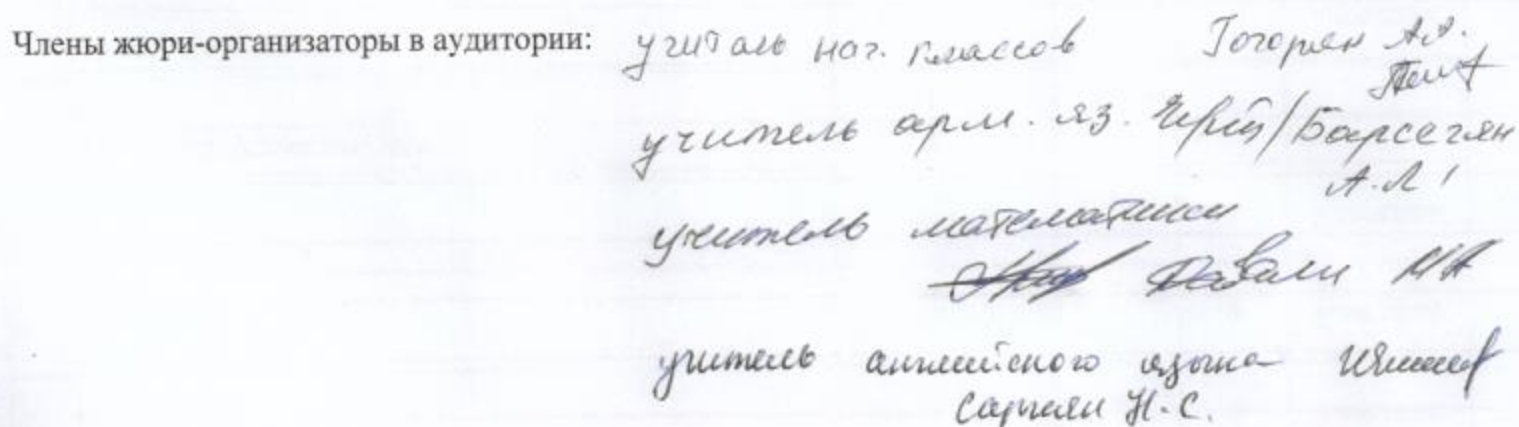 Члены жюри-организаторы в аудитории: учитель нач. классов Гогорян А.А.
учитель арм. яз. /Барсегян
А.Л/
учитель математики
учитель английского языка
Саргсян Н.С.